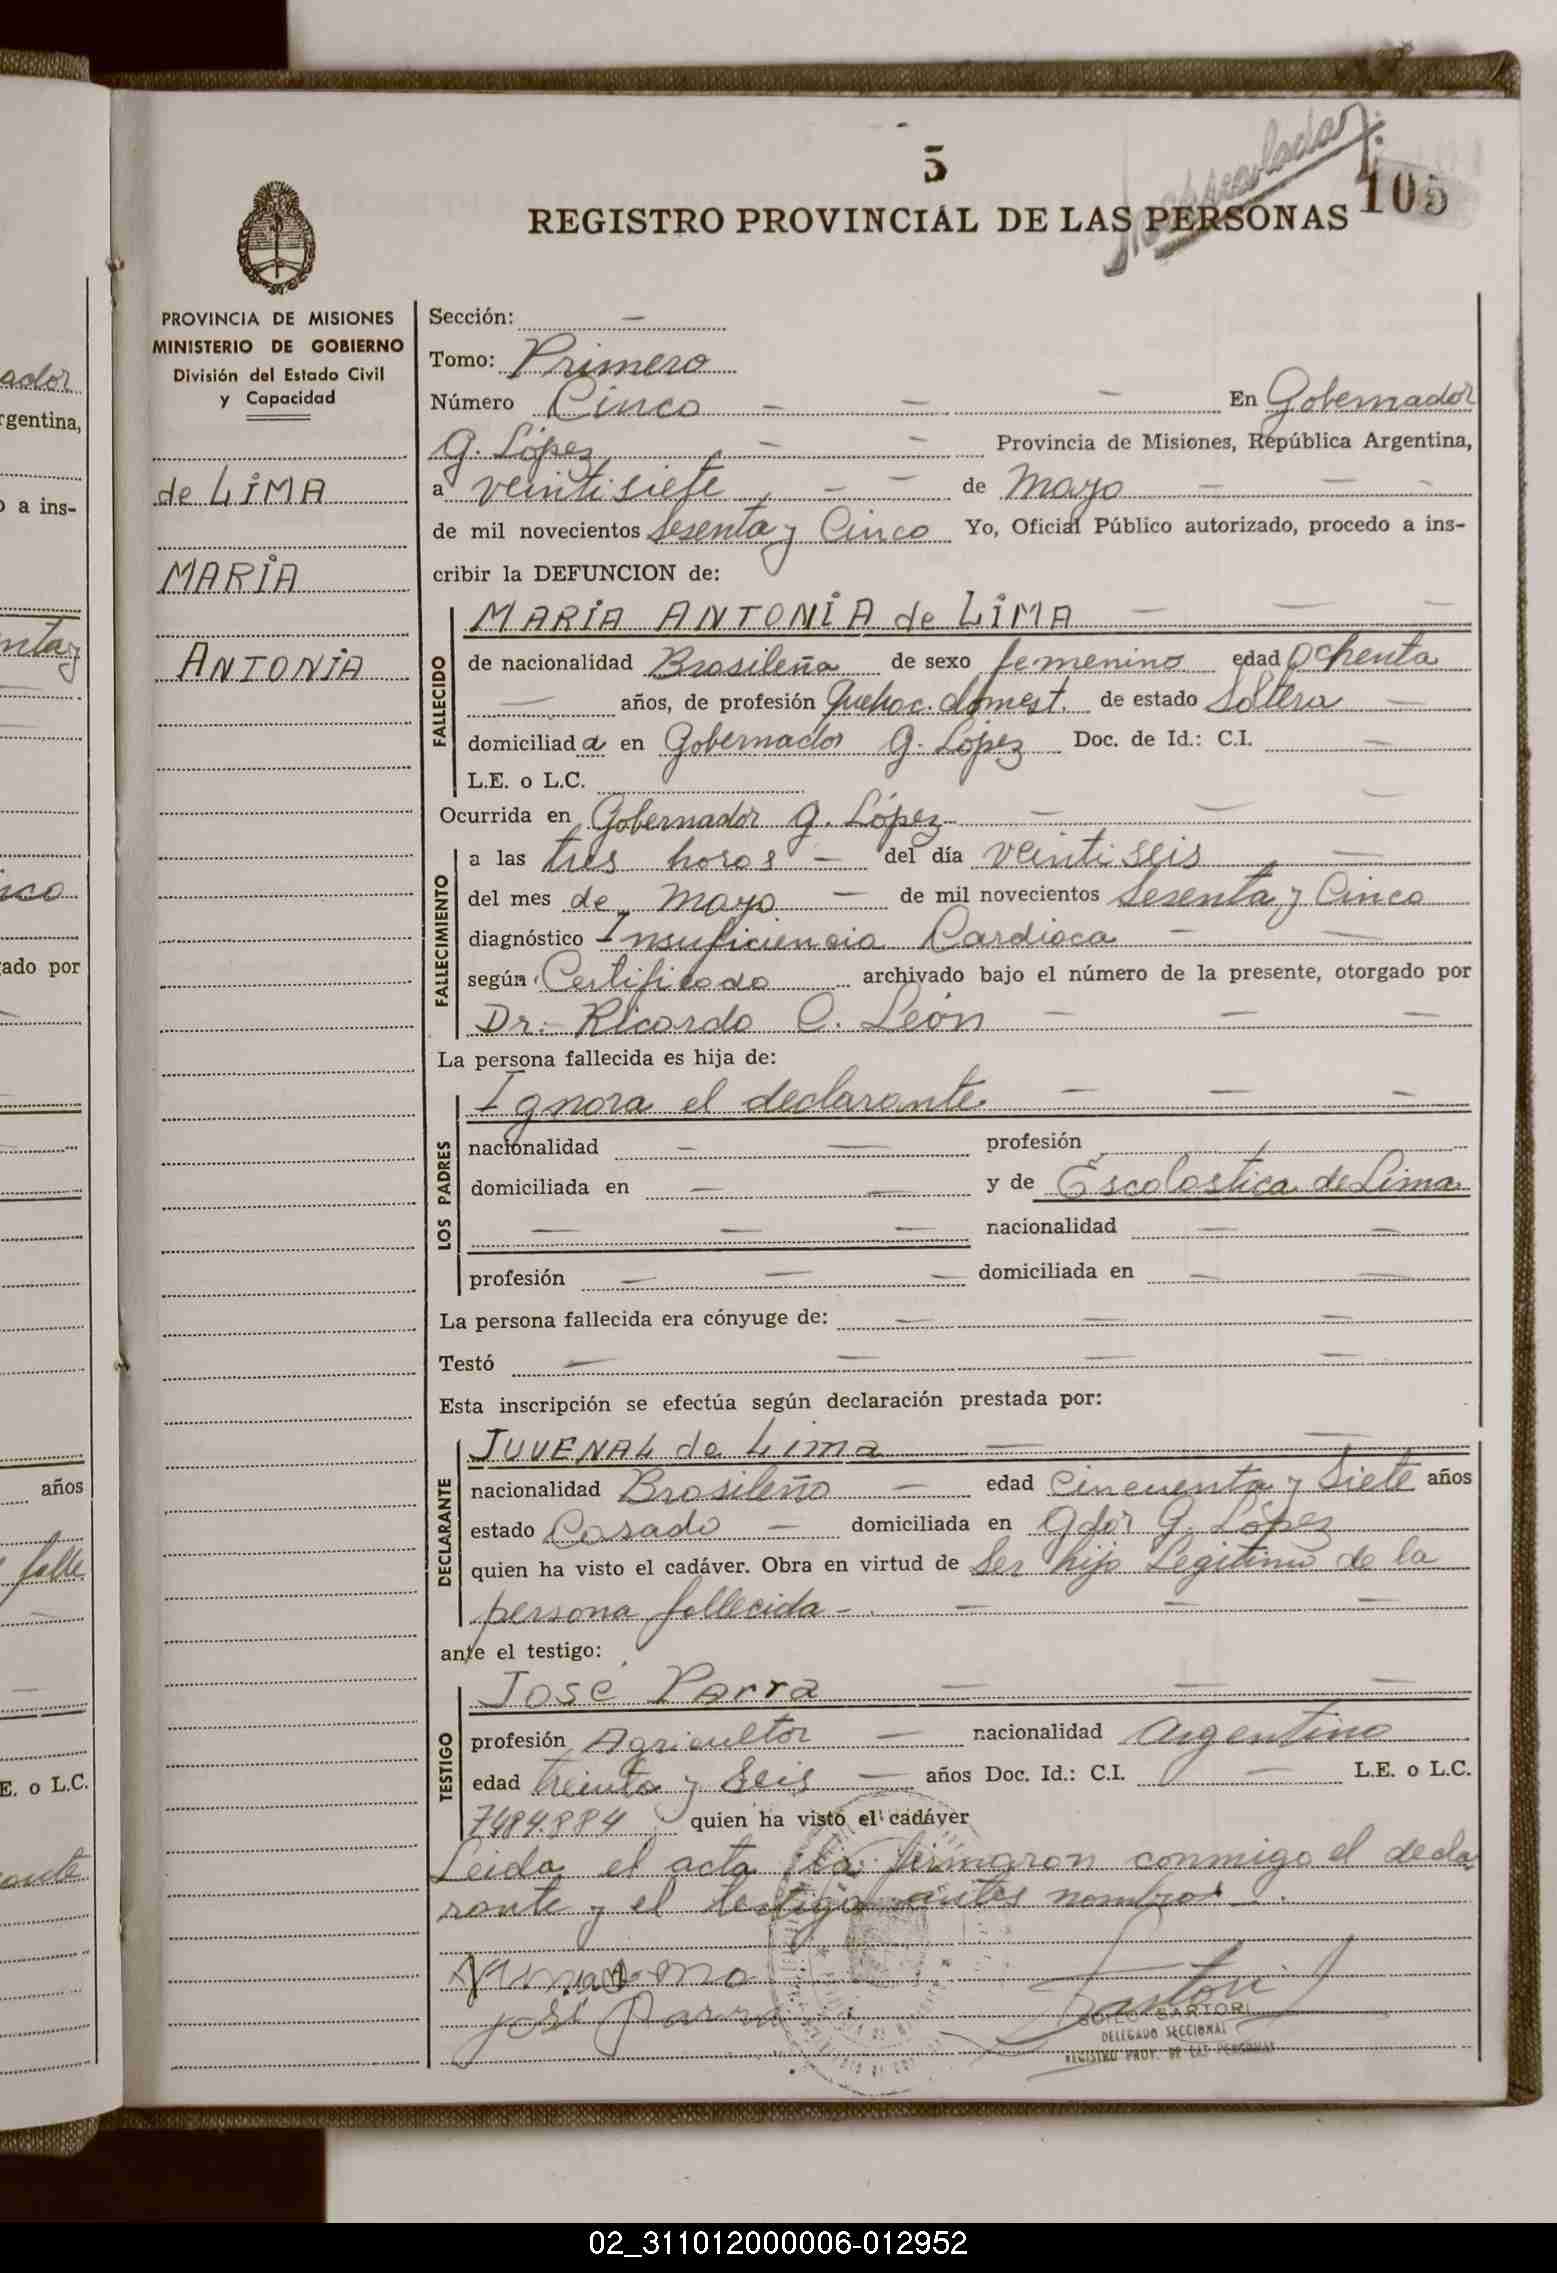 5
105
REGISTRO PROVINCIAL DE LAS PERSONAS
PROVINCIA DE MISIONES
MINISTERIO DE GOBIERNO
División del Estado Civil
y Capacidad
de LIMA
MARIA
ANTONIA
Sección: —
Tomo: Primero
Número Cinco — — — En Gobernador
G. López — — Provincia de Misiones, República Argentina,
a veintisiete, — — de Mayo — — —
de mil novecientos Sesenta y Cinco Yo, Oficial Público autorizado, procedo a ins-
cribir la DEFUNCION de:
FALLECIDO
MARIA ANTONIA de LIMA — — —
de nacionalidad Brasileña de sexo femenino edad Ochenta
— años, de profesión Quehac. domest. de estado Soltera —
domiciliada en Gobernador G. López Doc. de Id.: C.I. —
L.E. o L.C.
Ocurrida en Gobernador G. López — — —
FALLECIMIENTO
a las tres horas — del día veintiseis —
del mes de Mayo — de mil novecientos Sesenta y Cinco
diagnóstico Insuficiencia Cardiaca — —
según Certificado archivado bajo el número de la presente, otorgado por
Dr. Ricardo C. León — — —
La persona fallecida es hija de:
LOS PADRES
Ignora el declarante — — —
nacionalidad — — profesión
domiciliada en — — y de Escolastica de Lima
— — — nacionalidad — —
profesión — — — domiciliada en — —
La persona fallecida era cónyuge de: — — —
Testó — — — —
Esta inscripción se efectúa según declaración prestada por:
DECLARANTE
JUVENAL de Lima — —
nacionalidad Brasileño — edad Cincuenta y Siete años
estado Casado — domiciliada en Gdor G. López
quien ha visto el cadáver. Obra en virtud de Ser hijo Legitimo de la
persona fallecida — — — —
ante el testigo:
TESTIGO
José Parra — — —
profesión Agricultor — nacionalidad Argentino
edad treinta y Seis — años Doc. Id.: C.I. — L.E. o L.C.
7484.884 quien ha visto el cadáver
Leida el acta la firmaron conmigo el decla
rante y el testigo antes nombros —.
José Parra
Sartori
SARTORI
DELEGADO SECCIONAL
REGISTRO PROV. DE LAS PERSONAS
ador
rgentina,
o a ins-
ado por
años
falle
E. o L.C.
02_311012000006-012952